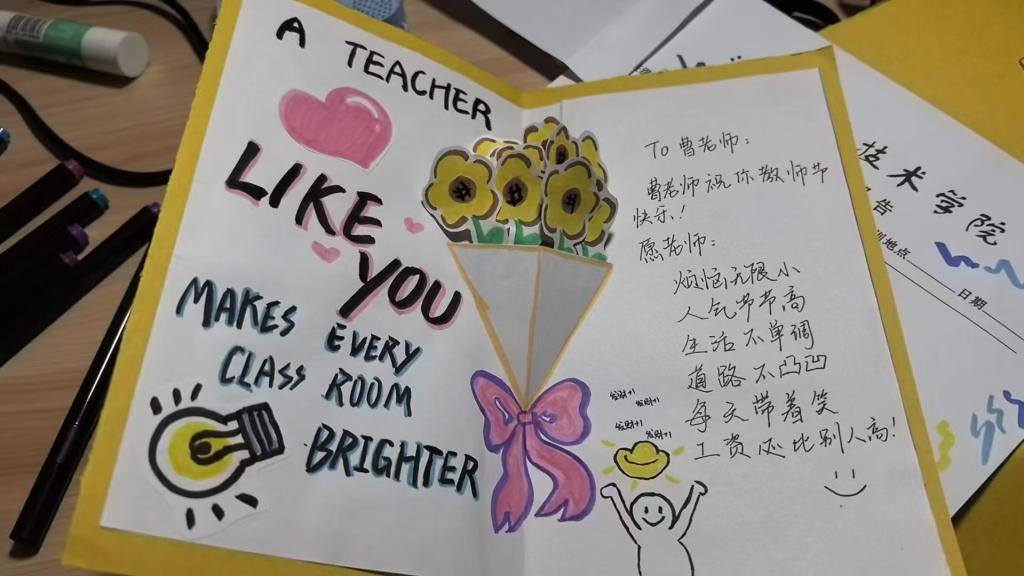 A TEACHER
LIKE
YOU
MAKES EVERY
CLASS ROOM
BRIGHTER
To 曹老师：
曹老师祝你教师节
快乐！
愿老师：
烦恼无限小
人气节节高
生活不单调
道路不凸凹
每天带着笑
工资还比别人高！
发财+1 发财+1
发财+1 发财+1
技术学院
告
地点
日期